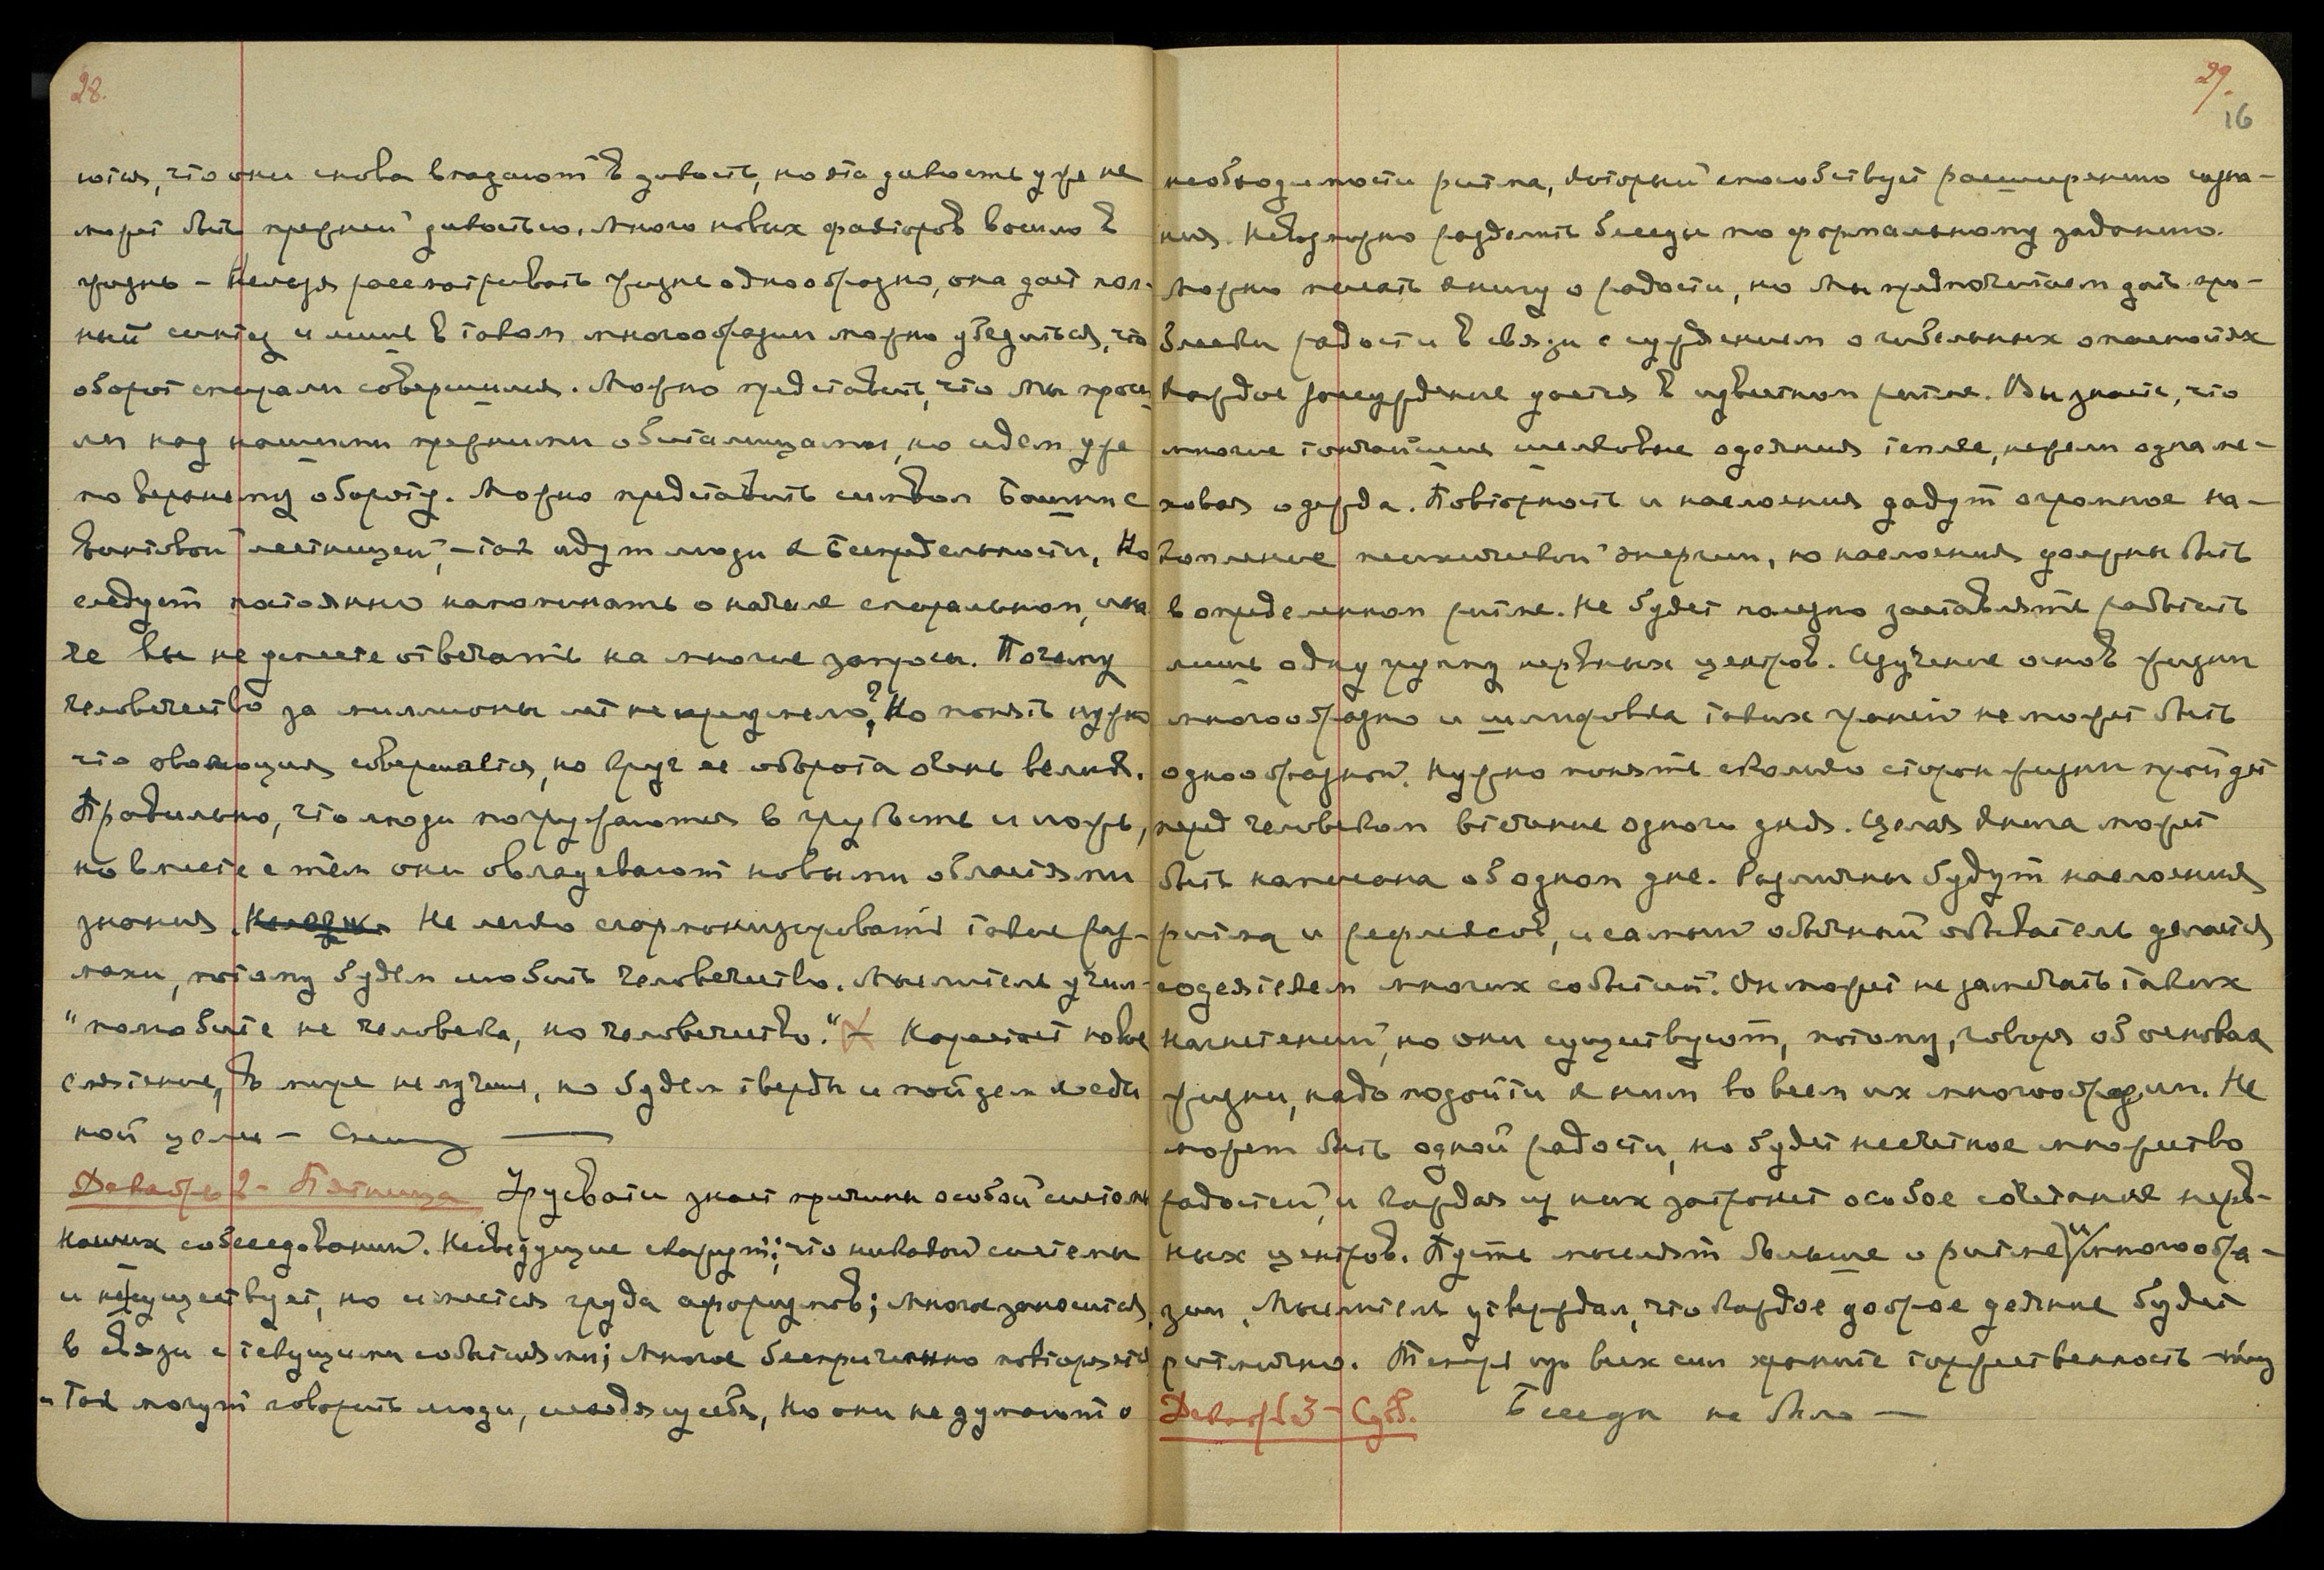 28.
нится, что они снова впадают в дикость, но эта дикость уже не
может быть прежней дикостью. Много новых факторов вошло в
жизнь – Нельзя рассматривать жизнь однообразно, она дает пол-
ный синтез и лишь в таком многообразии можно убедиться, что
оборот спирали совершился. Можно представить, что мы прош
ли над нашими прежними обиталищами, но идем уже
по верхнему обороту. Можно представить символ Башни с
винтовой лестницей, – так идут люди к Беспредельности, Но
следует постоянно напоминать о начале спиральном, ина
че вы не умеете отвечать на многие запросы. Почему
человечество за миллионы лет не преуспело? Но понять нужно
что эволюция совершается, но круг ее оборота очень велик.
Правильно, что люди погружаются в грубость и ложь,
но вместе с тем они овладевают новыми областями
знания. Не легко сгармонизировать такие раз-
махи, потому будем любить человечество. Мыслитель учил-
"полюбите не человека, но человечество." Нарастает новое
смятение, в мире не лучше, но будем тверды и пойдем к еди
ной цели – Спешу —
Декабрь 2 – Пятница Урусвати знает причины особой системы
Наших собеседований. Несведующие скажут; что никакой системы
и не существует, но имеется груда афоризмов; многое заносится
в связи с текущими событиями; многое беспричинно повторяется
– Так могут говорить люди, исходя из себя, Но они не думают о
29.
16
необходимости ритма, который способствует расширению созна-
ния. Невозможно разделить беседы по формальному заданию.
Можно писать книгу о радости, но Мы предпочитаем дать про-
блески радости в связи с суждением о гибельных опасностях
Каждое рассуждение дается в известном ритме. Вы знаете, что
многие тончайшие шелковые одеяния теплее, нежели одна ме-
ховая одежда. Повторность и наслоения дадут огромное на-
копление психической энергии, но наслоения должны быть
в определенном ритме. Не будет полезно заставлять работать
лишь одну группу нервных центров. Изучение основ жизни
многообразно и шлифовка таких граней не может быть
однообразной. Нужно понять сколько сторон жизни пройдет
перед человеком в течение одного дня. Целая книга может
быть написана об одном дне. Различны будут наслоения
ритма и рефлексов, и самый обычный обыватель делается
содеятелем многих событий. Он может не замечать таких
нагнетений, но они существуют, потому, говоря об основах
жизни, надо подойти к ним во всем их многообразии. Не
может быть одной радости, но будет несчетное множество
радостей, и каждая из них затронет особое сочетание нерв-
ных центров. Пусть мыслят больше о ритме и многообра-
зии. Мыслитель утверждал, что каждое доброе деяние будет
ритмично. Теперь изо всех сил храните торжественность
Декабрь 3 – Субб. Беседы не было —